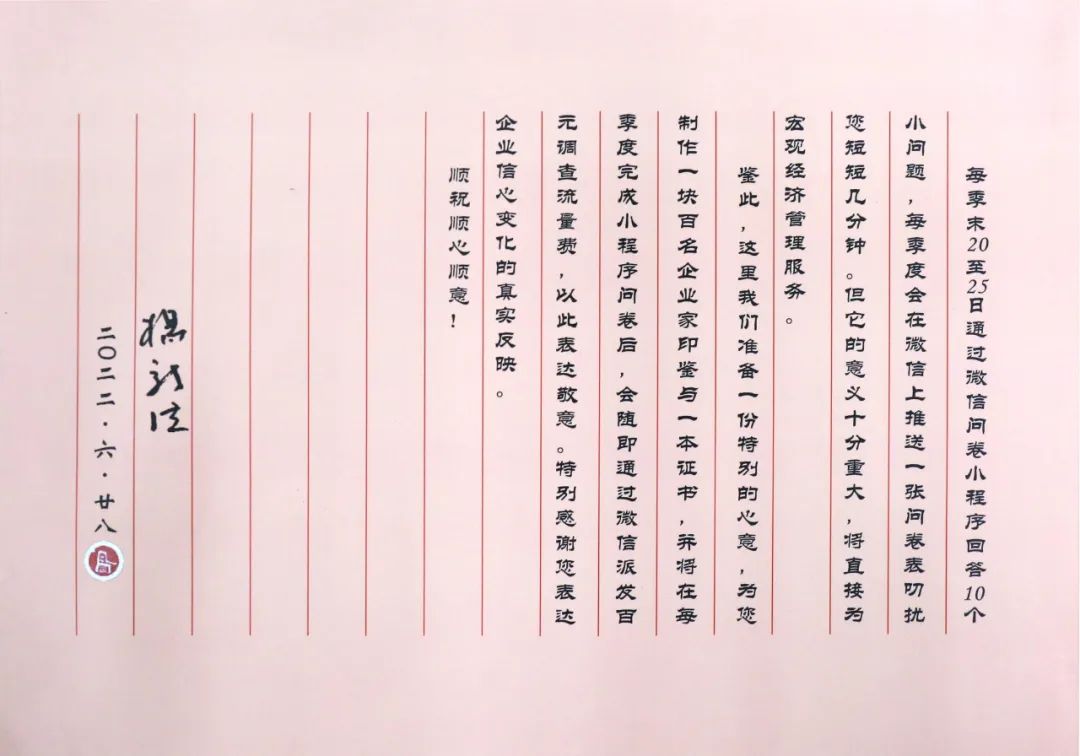 每季末20至25日通过微信问卷小程序回答10个
小问题，每季度会在微信上推送一张问卷表叨扰
您短短几分钟。但它的意义十分重大，将直接为
宏观经济管理服务。
鉴此，这里我们准备一份特别的心意，为您
制作一块百名企业家印鉴与一本证书，并将在每
季度完成小程序问卷后，会随即通过微信派发百
元调查流量费，以此表达敬意。特别感谢您表达
企业信心变化的真实反映。
顺祝顺心顺意！
二〇二二·六·廿八